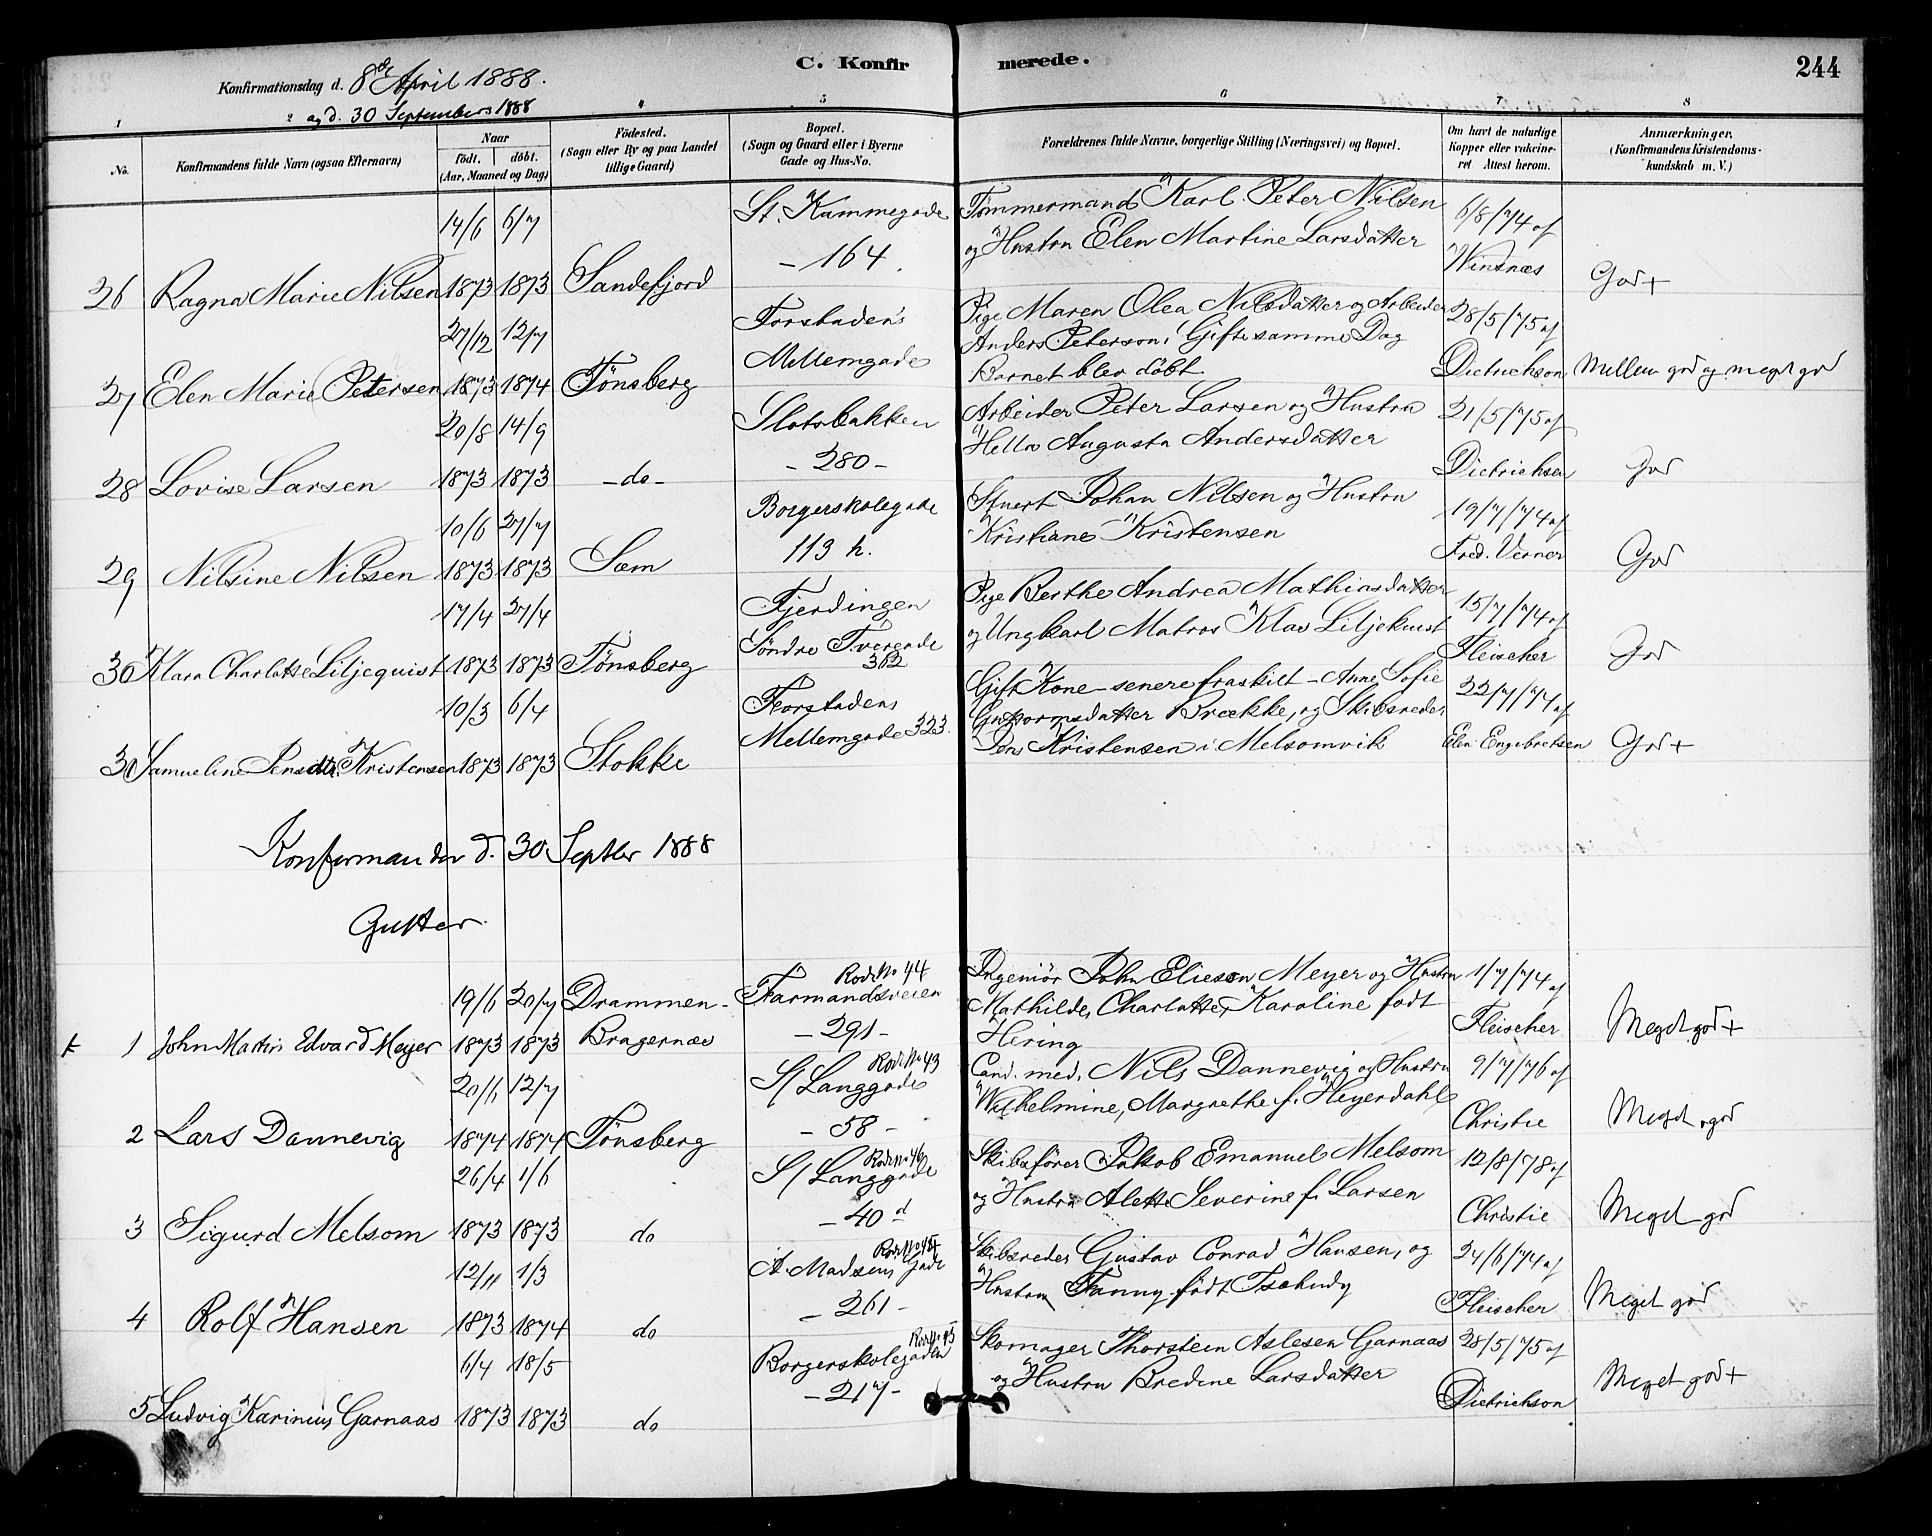 C. Konfirmerede.
244
Konfirmationsdag d. 8de April 1888.
og d. 30 Septembers 1888
1 2 4 5 6 7 8
No.
Konfirmandens fulde Navn (ogsaa Efternavn)
Naar
födt. döbt.
(Aar, Maaned og Dag)
Födested.
(Sogn eller By og paa Landet
tillige Gaard)
Bopæl.
(Sogn og Gaard eller i Byerne
Gade og Hus-No.
Forældrenes fulde Navne, borgerlige Stilling (Næringsvei) og Bopæl.
Om havt de naturlige
Kopper eller vakcine-
ret Attest herom.
Anmærkninger.
(Konfirmandens Kristendoms-
kundskab m. V.)
26 Ragna Marie Nilsen
14/6 1873
6/7 1873
Sandefjord
St. Kammegade
- 164.
Tømmermand Karl Peter Nilsen
og Hustru Elen Martine Larsdatter
6/8/74 af
Windnæs
God +
27 Elen Marie Petersen
27/12 1873
12/7 1874
Tönsberg
Forstadens
Mellemgade
Pige Maren Olea Nilsdatter og Arbeider
Anders Peterson; Gifte samme Dag
Barnet blev döbt
28/5/75 af
Dietrichson
Mellem god og meget god
28 Lovise Larsen
20/8 1873
14/9 1873
- do -
Slotsbakken
- 280 -
Arbeider Peter Larsen og Hustru
Helle Augusta Andersdatter
21/5/75 af
Dietrichsen
God
29 Nilsine Nilsen
10/6 1873
27/7 1873
Sem
Borgerskolegade
113 h.
Stuert Johan Nilsen og Hustru
Kristiane Kristensen
19/7/74 af
Fred. Verner
God
30 Klara Charlotte Liljequist
17/4 1873
27/4 1873
Tönsberg
Fjerdingen
Söndre Tvergade
362
Pige Berthe Andrea Mathiasdatter
og Ungkarl Matros Klas Liljekuist
15/7/74 af
Fleischer
God
31 Samueline Jensdtr. Kristensen
10/3 1873
6/4 1873
Stokke
Forstadens
Mellemgade 323.
Gift Kone - senere fraskilt - Anne Sofie
Guttormsdatter Brekke, og Skibsreder
Jens Kristensen i Melsomvik
22/7/74 af
Elen Engebretsen
God +
Konfirmander d. 30 Septbr 1888
Gutter
1 John Martin Edvard Meyer
19/6 1873
20/7 1873
Drammen -
Bragernæs
Rode No 44
Farmandsveien
- 291 -
Ingeniör John Elieson Meyer og Hustru
Mathilde, Charlotte, Karoline født
Hering
1/7/74 af
Fleischer
Meget god +
2 Lars Dannevig
20/6 1874
12/7 1874
Tönsberg
Rode No 43
S/ Langgade
- 58 -
Cand. med. Nils Dannevig og Hustru
Wilhelmine, Margrethe f. Heyerdahl
9/7/76 af
Christie
Meget god
3 Sigurd Melsom
26/4 1873
1/6 1873
do
Rode No 46
S/ Langgade
- 40 d
Skibsfører Jakob Emanuel Melsom
og Hustru Alette Severine f. Larsen
12/8/78 af
Christie
Meget god
4 Rolf Hansen
12/11 1873
1/3 1874
do
A. Madsens Gade
- 261 -
Skibsreder Gustav Conrad Hansen, og
Hustru Fanny födt Tschudy
24/6/74 af
Fleischer
Meget god
5 Ludvig Karinius Garnaas
6/4 1873
18/5 1873
do
Borgerskolegaden
- 217 -
Skomager Thorstein Aslesen Garnaas
og Hustru Bredine Larsdatter
28/5/75 af
Dietrichson
Meget god +